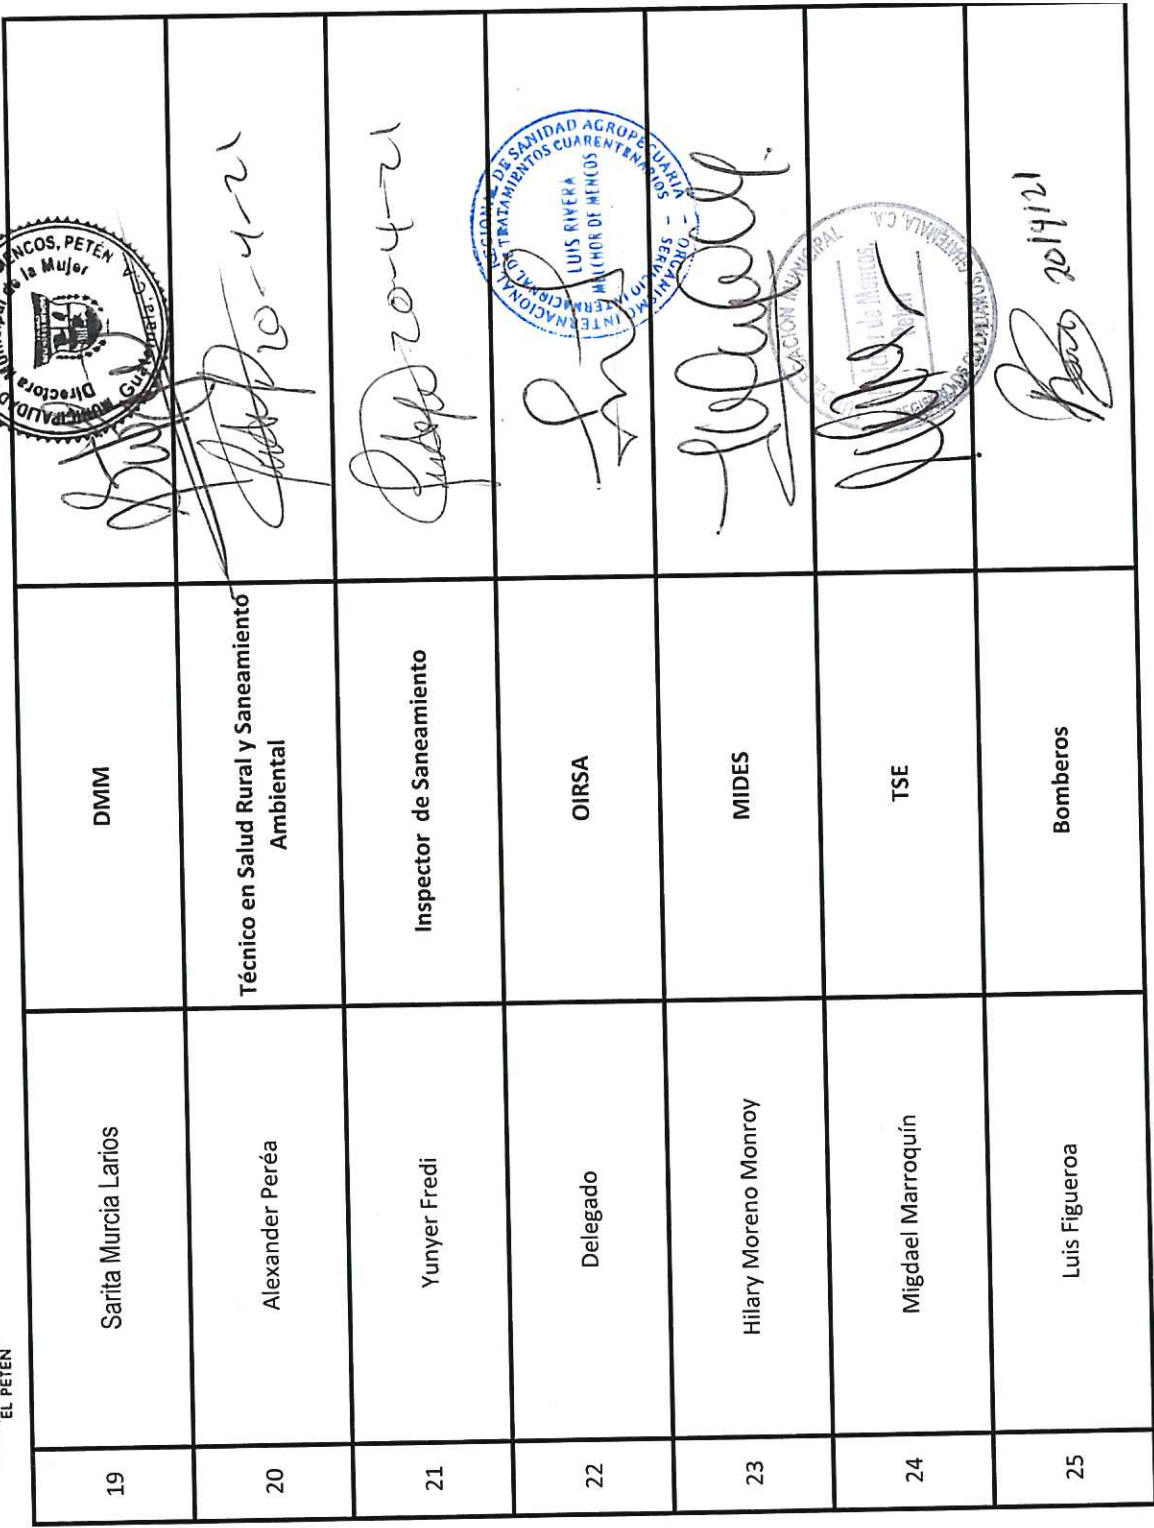 EL PETÉN
19
Sarita Murcia Larios
DMM
MENCOS, PETÉN
de la Mujer
Directora
MUNICIPALIDAD
Guatemala, C.A.
20
Alexander Peréa
Técnico en Salud Rural y Saneamiento
Ambiental
20-4-21
21
Yunyer Fredi
Inspector de Saneamiento
20-4-21
22
Delegado
OIRSA
ORGANISMO INTERNACIONAL REGIONAL DE SANIDAD AGROPECUARIA
SERVICIO INTERNACIONAL DE TRATAMIENTOS CUARENTENARIOS
LUIS RIVERA
MELCHOR DE MENCOS
23
Hilary Moreno Monroy
MIDES
24
Migdael Marroquín
TSE
MUNICIPAL
de Mencos
GUATEMALA, C.A.
25
Luis Figueroa
Bomberos
20/4/21